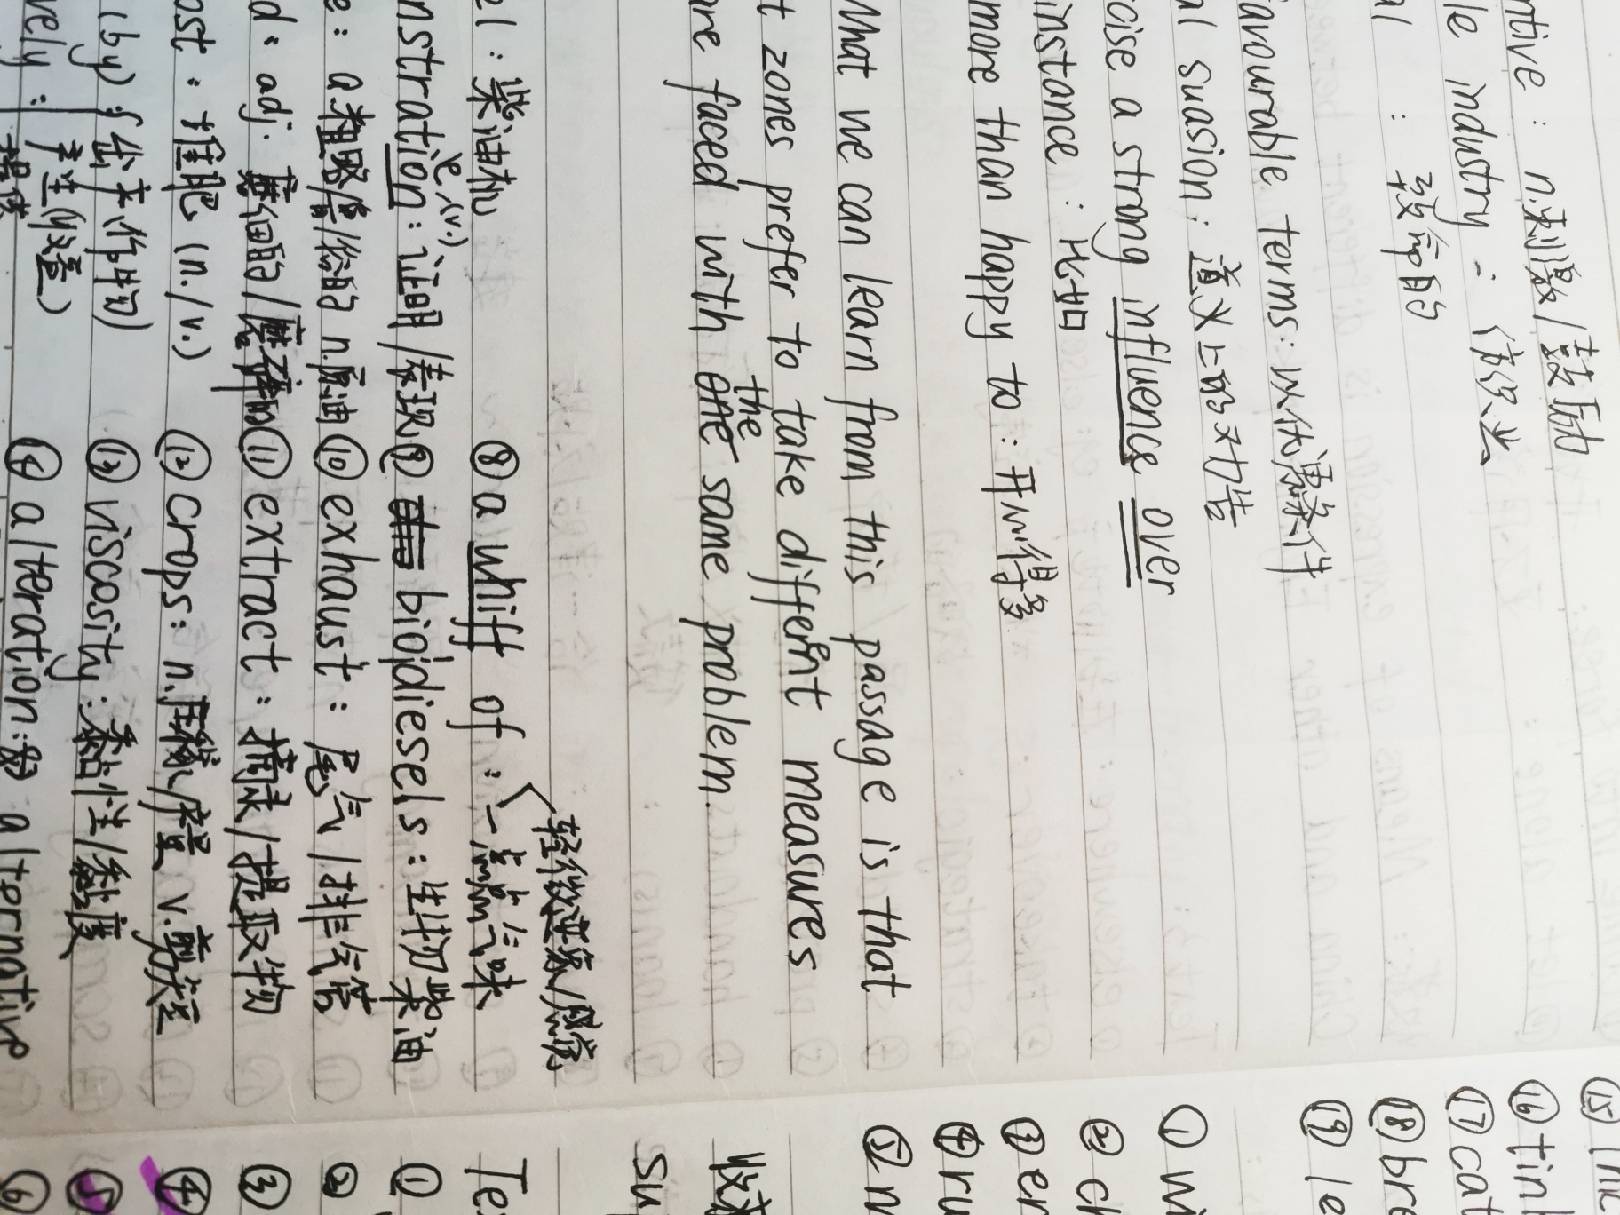 ntive : n.刺激/鼓励
le industry :
al : 教育的
favourable terms: 以优惠条件
al suasion: 道义上的劝告
cise a strong influence over
instance : 比如
more than happy to : 开心得多
What we can learn from this passage is that
t zones prefer to take different measures
the
are faced with one same problem.
轻微迹象/感觉
el : 柴油机 ⑧ a whiff of : 一点点气味
nstration: 证明/表现 ⑨ biodiesels : 生物柴油
e : a.粗略/ n.原油 ⑩ exhaust : 尾气/排气管
d : adj. 磨细的/磨碎的 ⑪ extract : 摘录/提取物
ost : 堆肥 (n./v.) ⑫ crops : n.庄稼/产量 v.剪短
(by) ⑬ viscosity : 黏性/黏度
vely : ⑭ alteration: alternative
⑮
⑯ tin
⑰ cat
⑱ bre
⑲ le
① wi
② ch
③ en
④ ru
⑤ n
su
Te
①
②
③
④
⑤
⑥